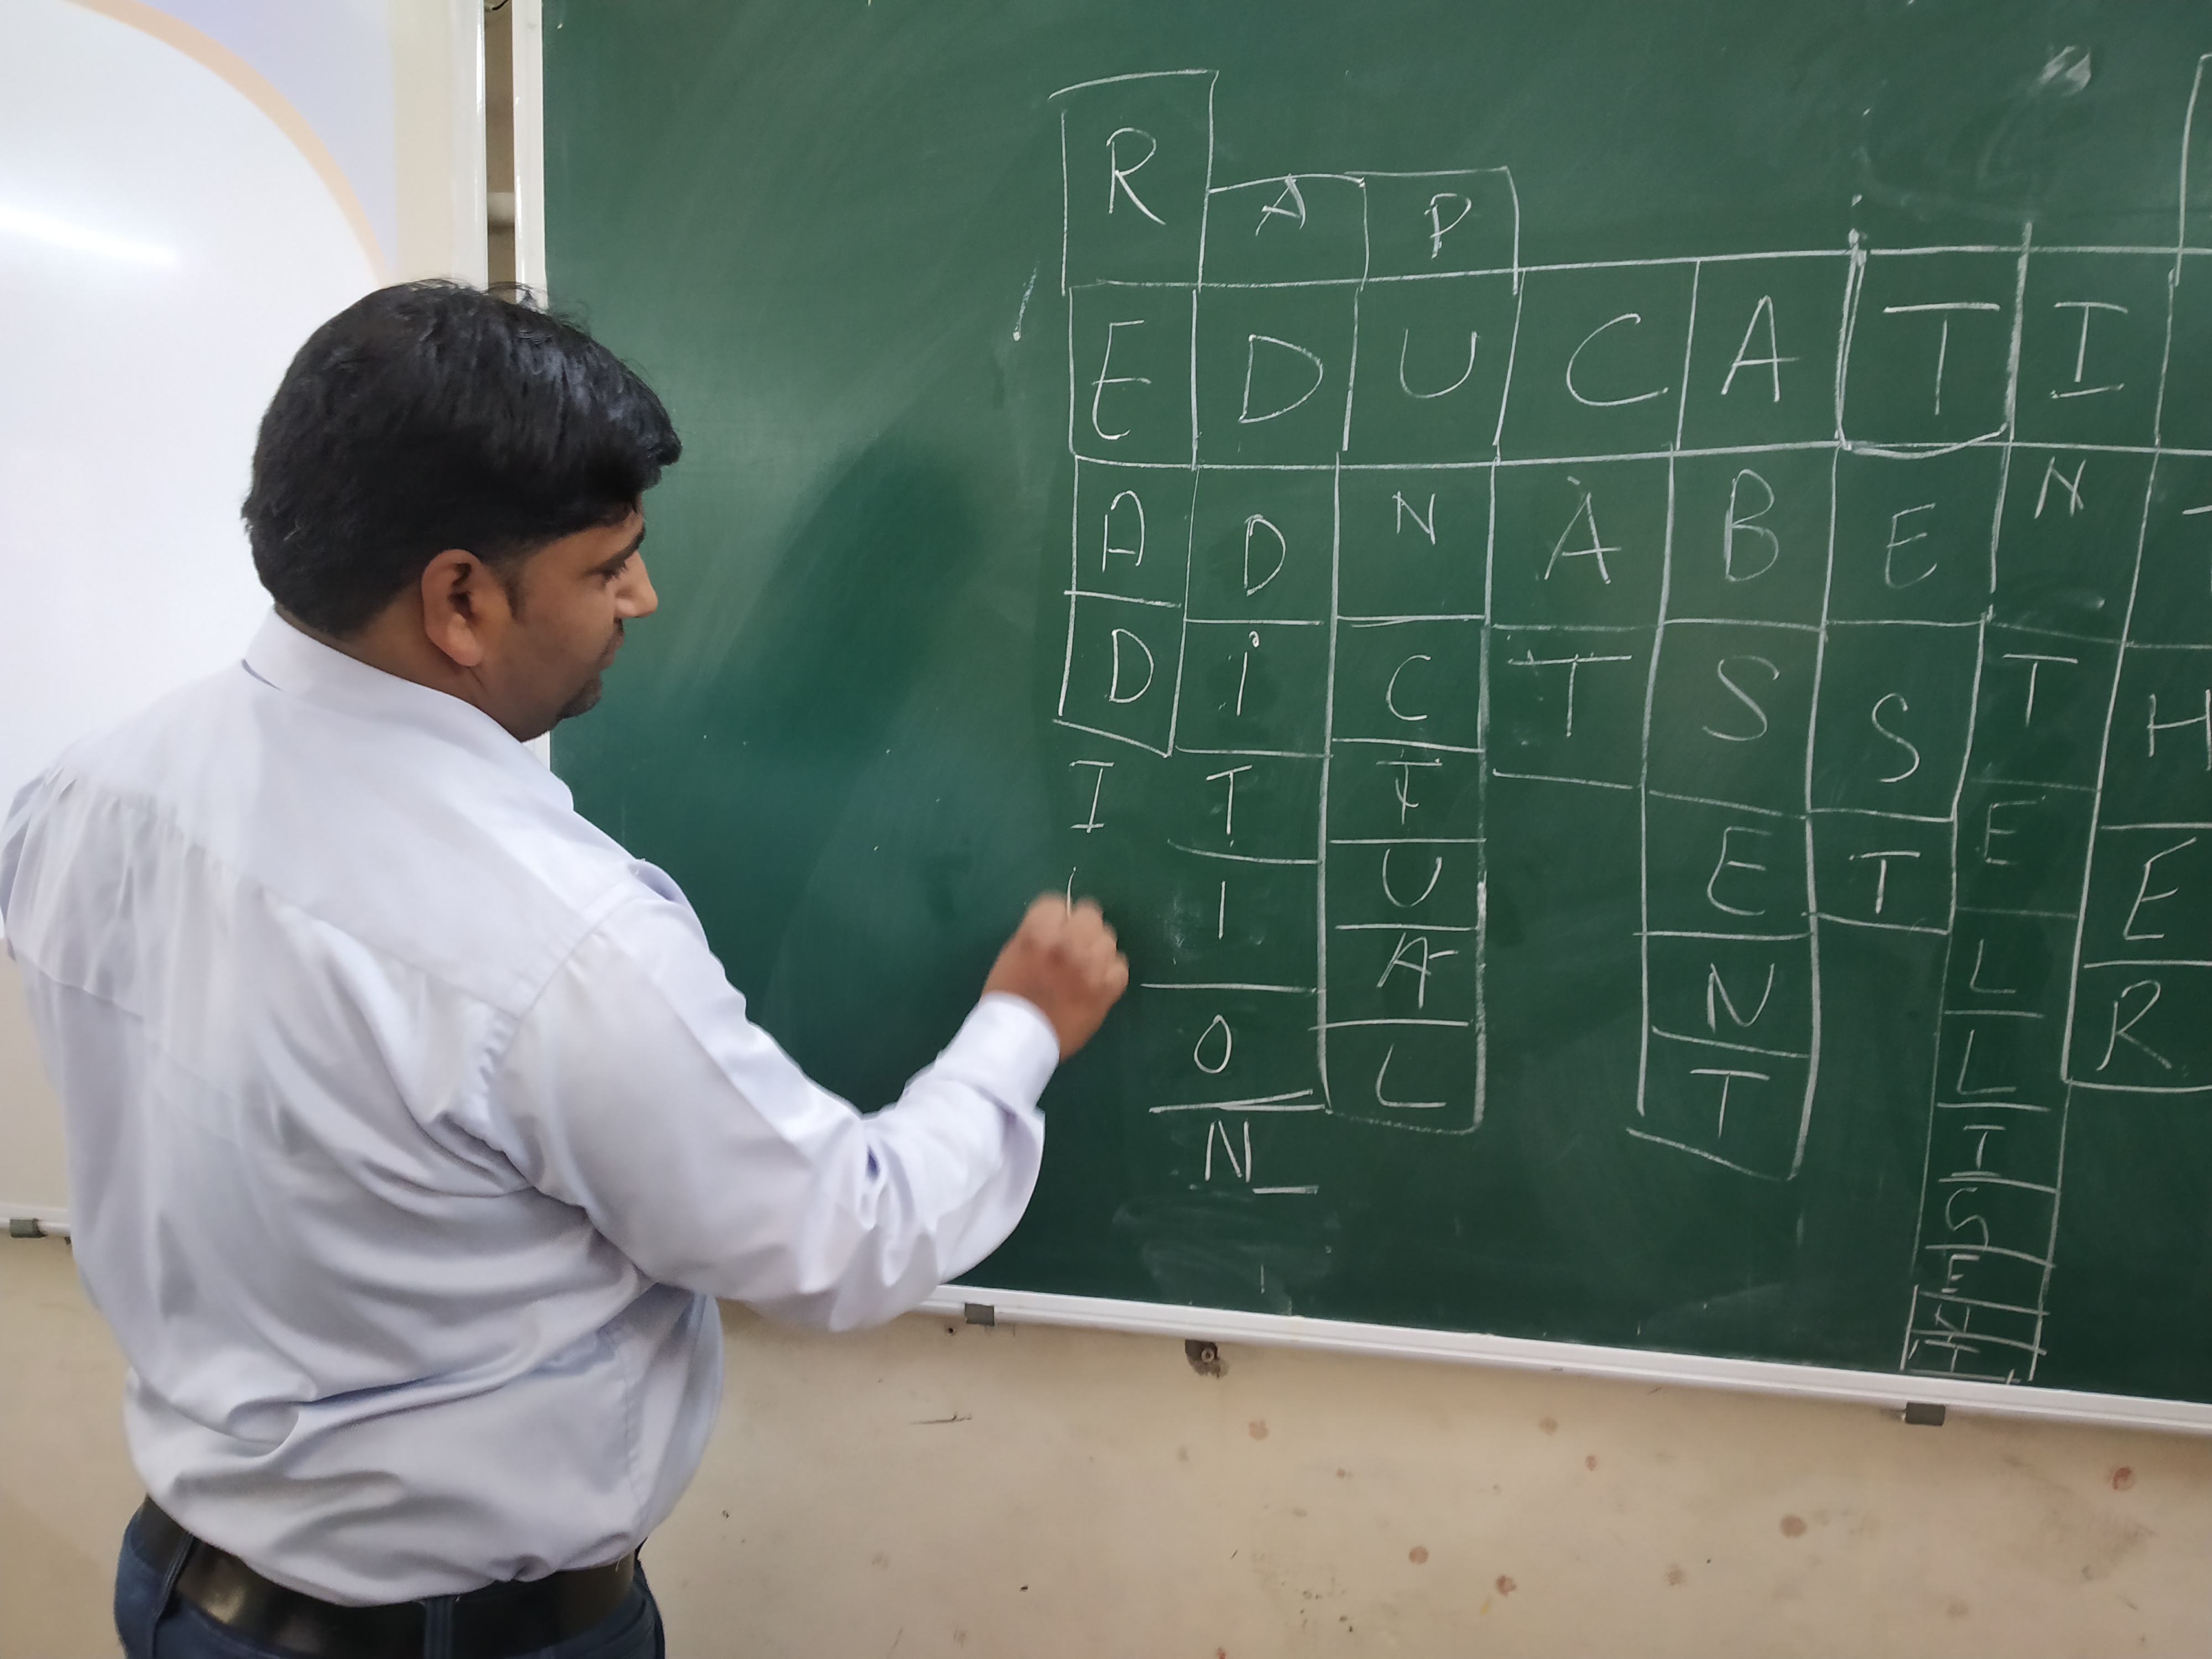 R
A P
E D U C A T I
A D N A B E N
D I C T S S T H
I T T E T E
I U E
O A N L R
N L T L
I
S
E
N
T